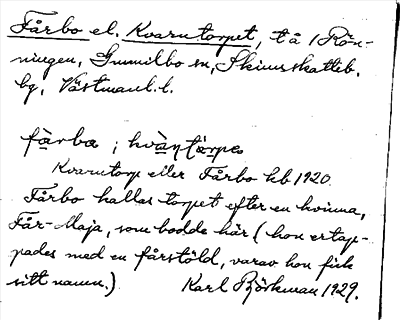 Fårbo el. Kvarntorpet, t å 1 Rön-
ningen, Gunnilbo sn, Skinnskatteb.
bg, Västmanl. l.
fårba ; hvàn̩tårpe
Kvarntorp eller Fårbo kb 1920
Fårbo kallas torpet efter en kvinna,
Får-Maja, som bodde här (hon ertap-
pades med en fårstöld, varav hon fick
sitt namn.) Karl Björkman 1929.